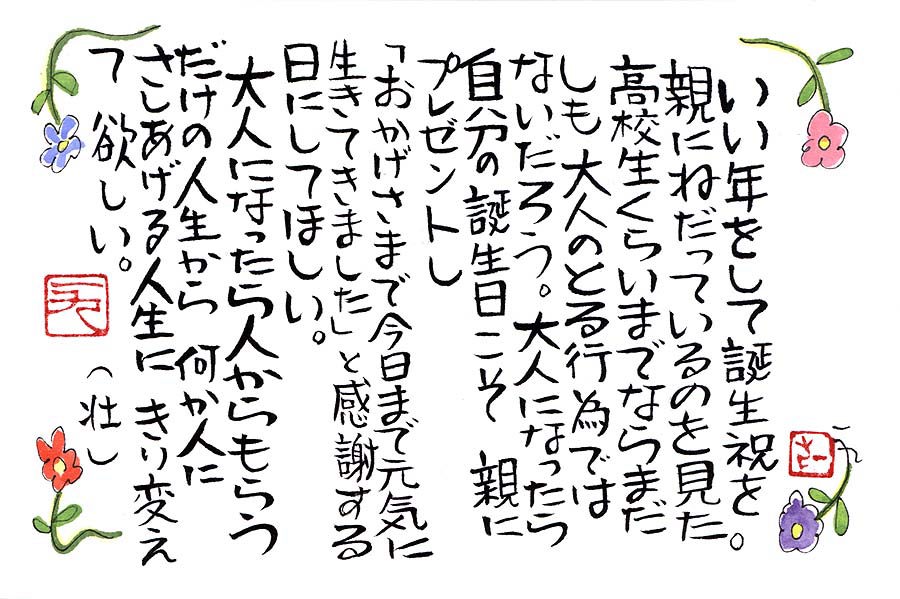 いい年をして誕生祝を。
親にねだっているのを見た
高校生くらいまでならまだ
しも大人のとる行為では
ないだろう。大人になったら
自分の誕生日こそ 親に
プレゼントし
「おかげさまで今日まで元気に
生きてきました」と感謝する
日にしてほしい。
大人になったら人からもらう
だけの人生から 何か人に
さしあげる人生に きり変え
て 欲しい。
(壮)